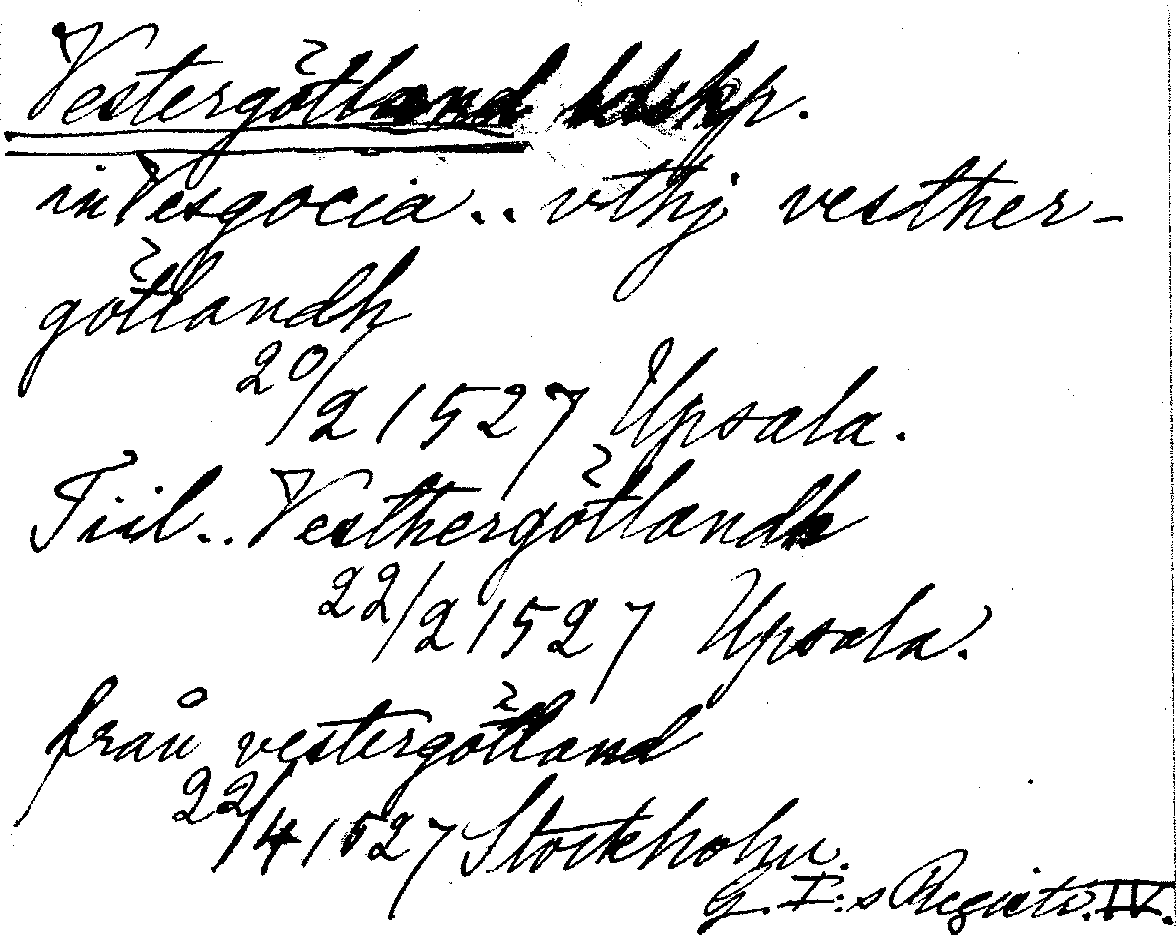 Vestergötland ldskp.
in Vesgocia.. vthj vesther-
götlandh
20/2 1527 Upsala.
Tiil.. Vesthergötlandh
22/2 1527 Upsala.
från vestergötland
22/4 1527 Stockholm.
G. I:s Registr. IV.